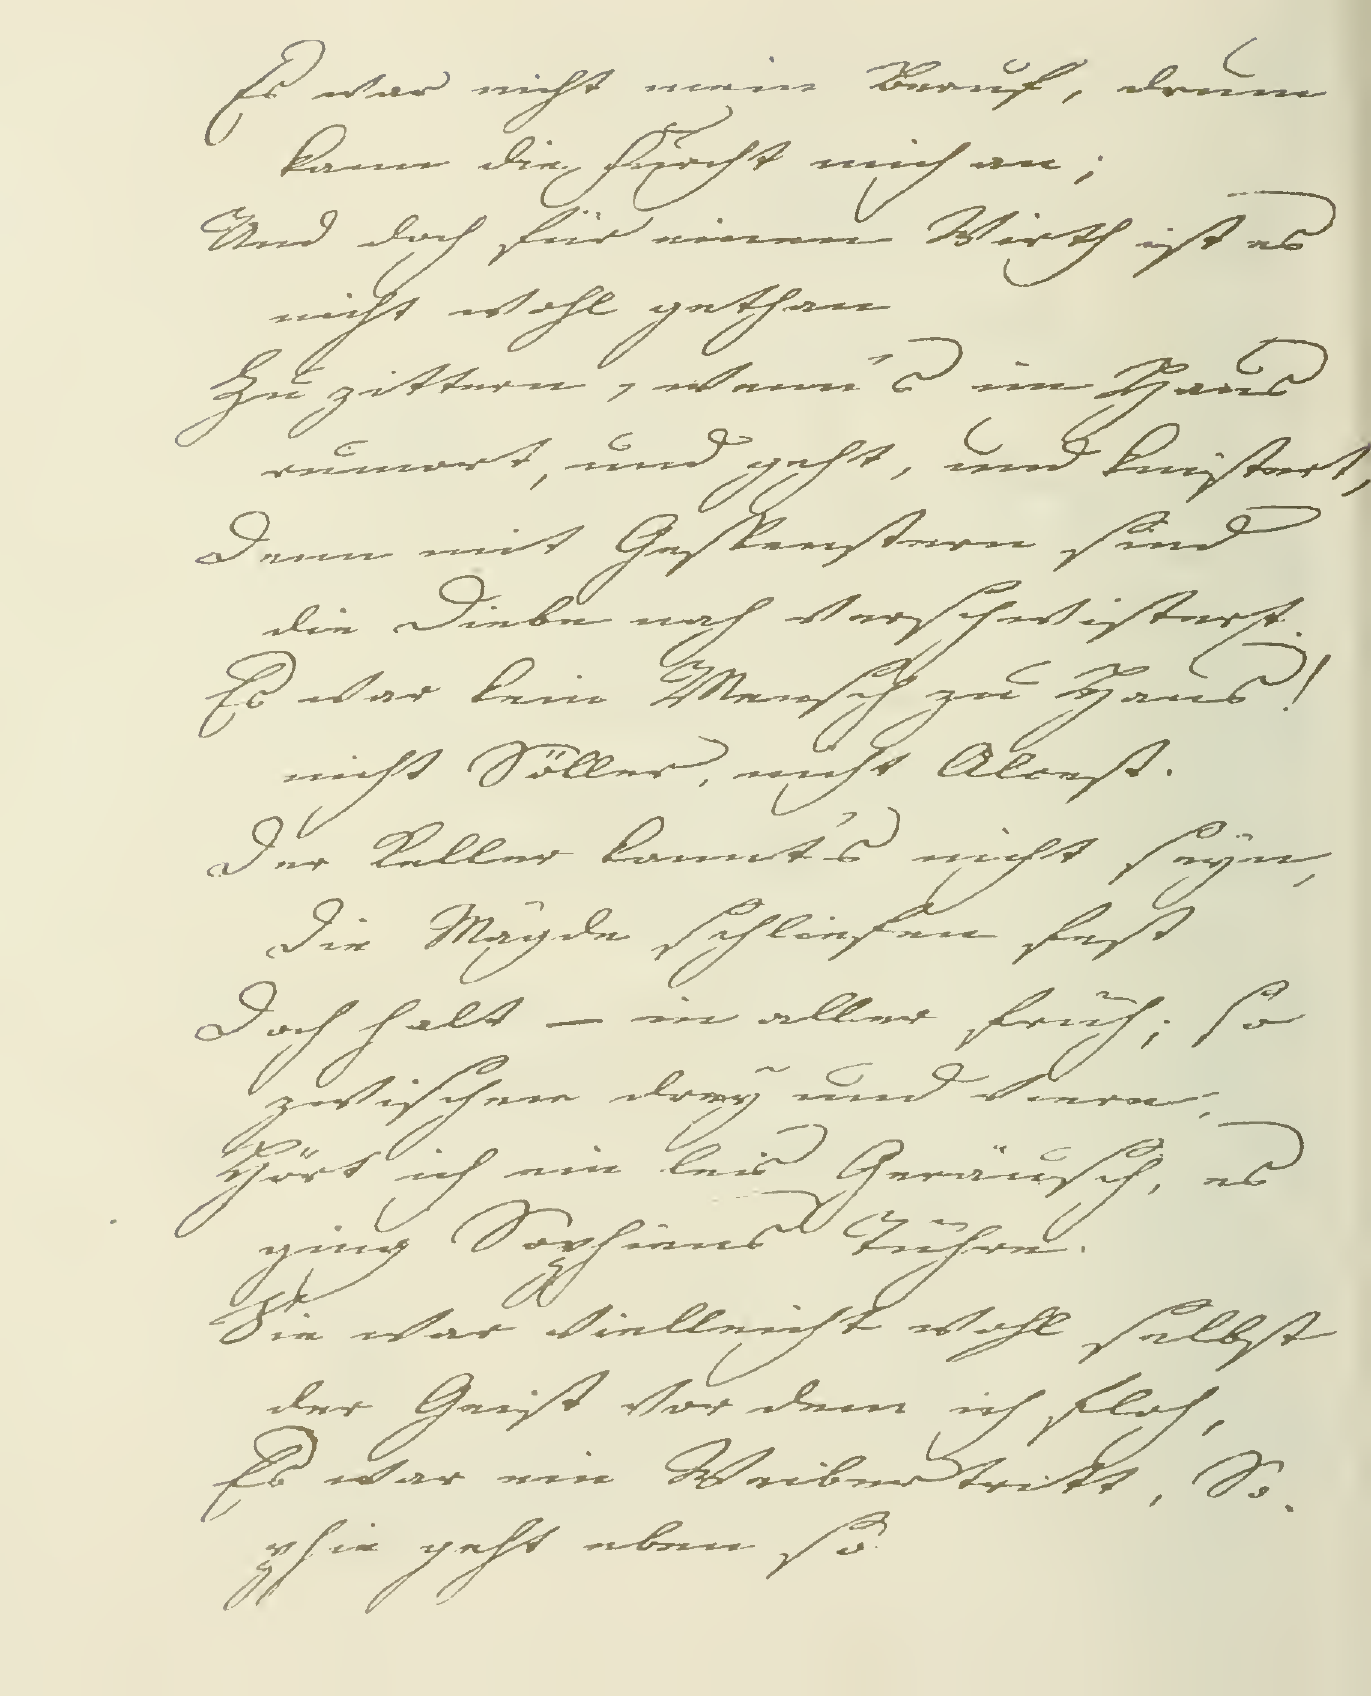 Es war nicht mein Beruf, drum
kam die Furcht mich an;
Und doch für einen Wirth ist es
nicht wohl gethan
Zu zittern, wenn's im Haus
rumort, und geht, und knistert,
Denn mit Gespenstern sind
die Diebe nah verschwistert.
Es war kein Mensch zu Haus!
nicht Söller, nicht Alcest.
Der Keller konnt's nicht seyn,
Die Mägde schliefen fest
Doch halt — in aller früh; so
zwischen drey und viere,
Hört ich ein leis Geräusch, es
ging Sophiens Tühre.
Sie war vielleicht wohl selbst
der Geist vor dem ich floh,
Es war ein Weibertritt, So-
phie geht eben so